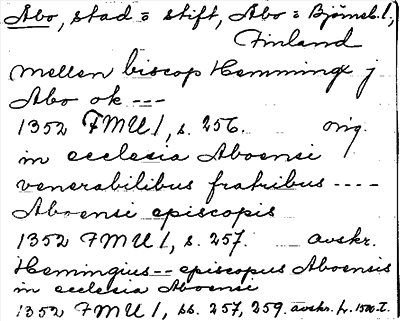 Åbo, stad o stift, Åbo o Björneb. l.,
Finland
mellan biscop Hemminge j
Abo ok ---
1352 FMU 1, s. 256. orig.
in ecclesia Aboensi
venerabilibus fratribus ----
Aboensi episcopis
1352 FMU 1, s. 257. avskr.
Hemingius -- episcopus Aboensis
in ecclesia Aboensi
1352 FMU 1, ss. 257, 259. avskr. fr. 1500-t.